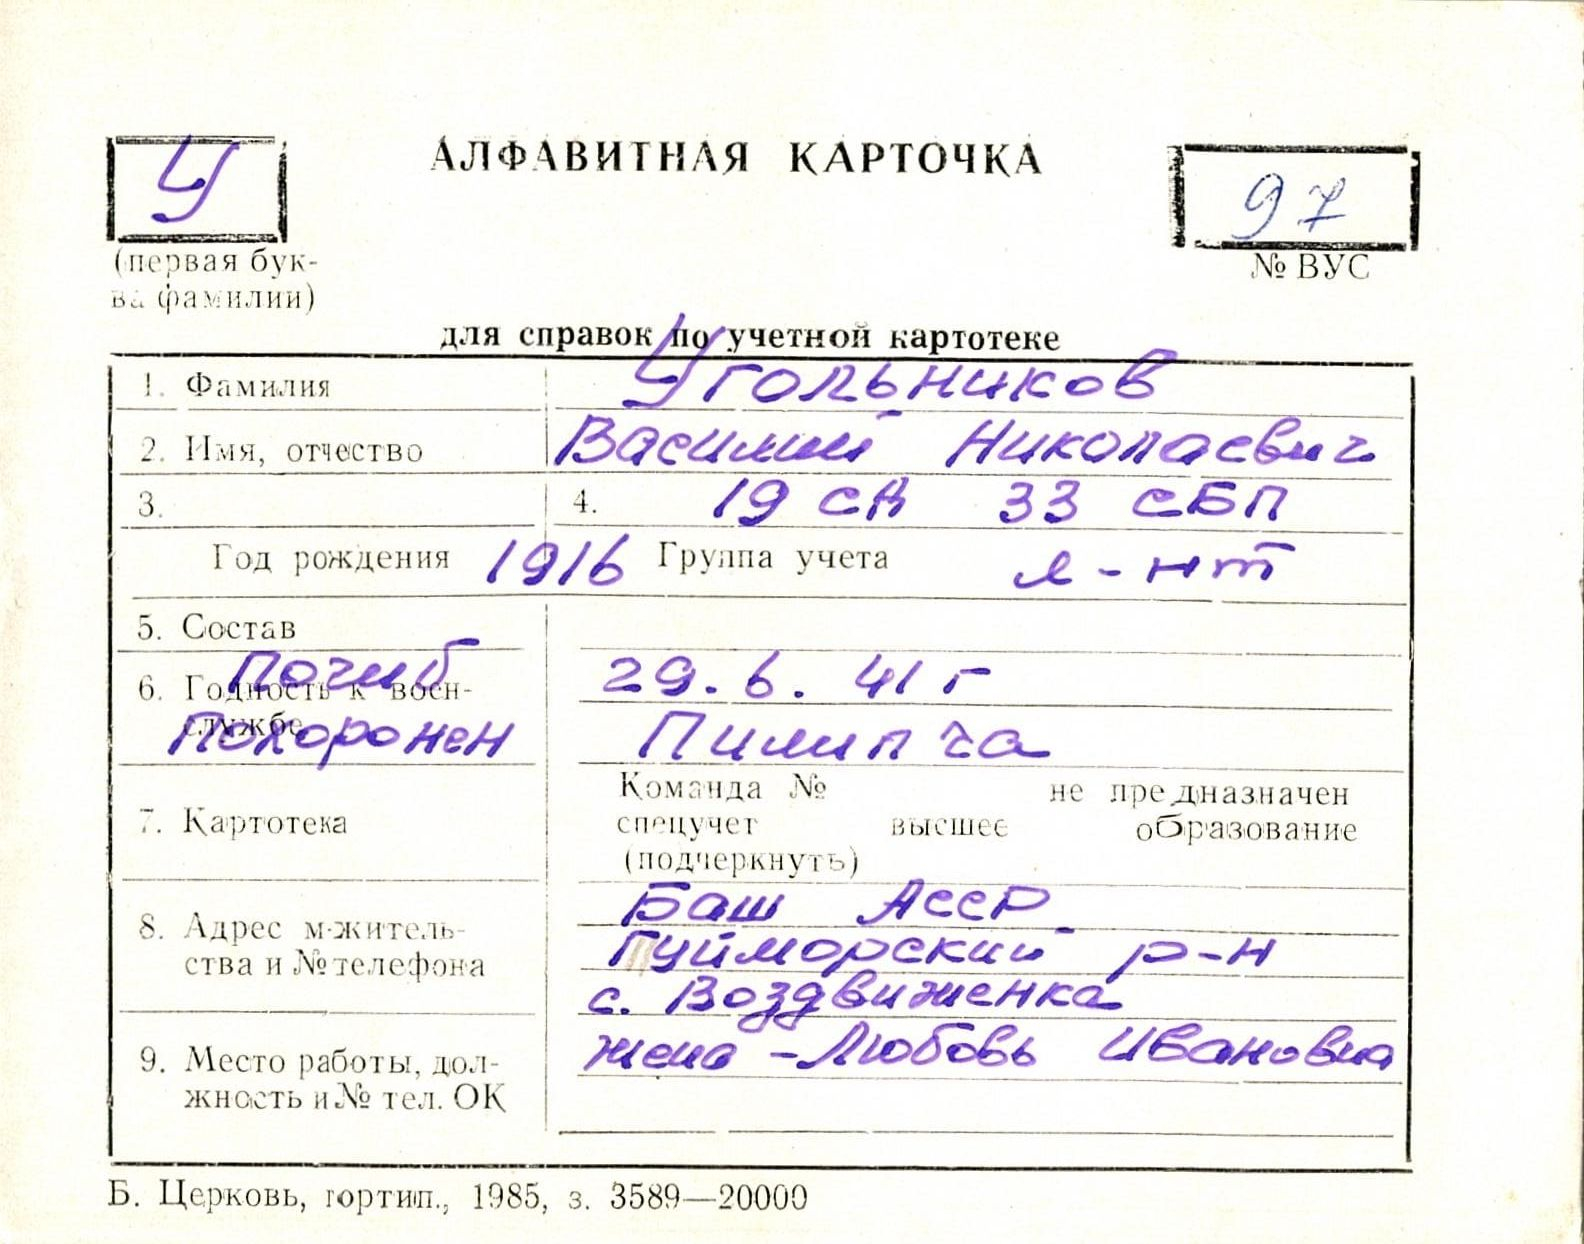 У
АЛФАВИТНАЯ КАРТОЧКА
97
(первая бук-
ва фамилии)
№ ВУС
для справок по учетной картотеке
1. Фамилия Угольников
2. Имя, отчество Василий Николаевич
3. 4. 19 сд 33 СБП
Год рождения 1916 Группа учета л-нт
5. Состав
Погиб 29.6.41 г
6. Годность к воен-
службе
Похоронен Пилипча
7. Картотека
Команда № не предназначен
спецучет высшее образование
(подчеркнуть)
8. Адрес м-житель-
ства и № телефона
Баш АССР
Гуйморский р-н
с. Воздвиженка
жена - Любовь Ивановна
9. Место работы, дол-
жность и № тел. ОК
Б. Церковь, гортип., 1985, з. 3589—20000